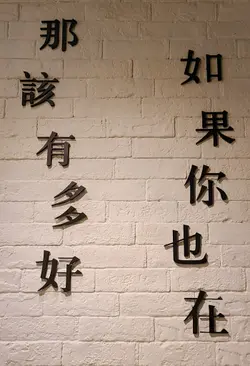 如果你也在
那該有多好